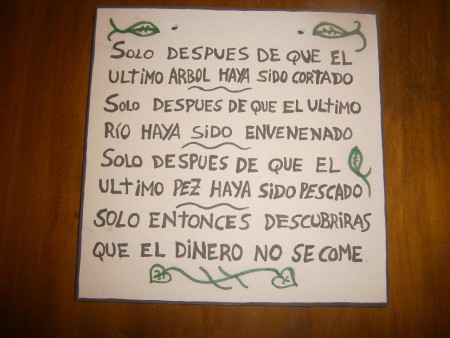 SOLO DESPUES DE QUE EL
ULTIMO ARBOL HAYA SIDO CORTADO
SOLO DESPUES DE QUE EL ULTIMO
RÍO HAYA SIDO ENVENENADO
SOLO DESPUES DE QUE EL
ULTIMO PEZ HAYA SIDO PESCADO
SOLO ENTONCES DESCUBRIRAS
QUE EL DINERO NO SE COME.